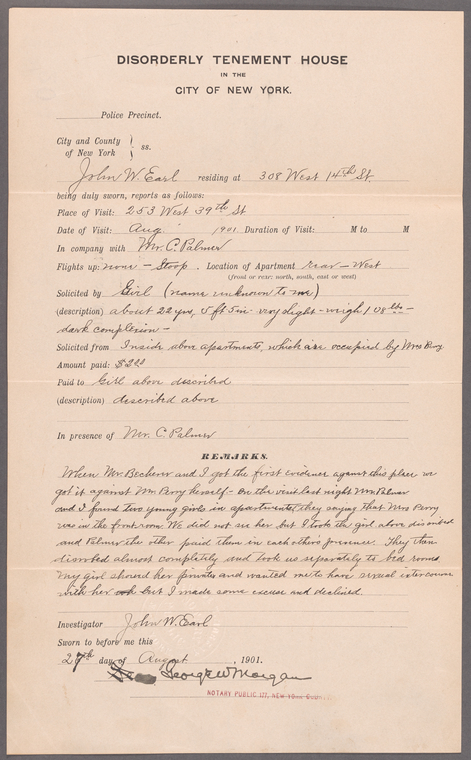 DISORDERLY TENEMENT HOUSE
IN THE
CITY OF NEW YORK.
Police Precinct.
City and County
of New York } ss.
John W. Earl residing at 308 West 14th St.
being duly sworn, reports as follows:
Place of Visit: 253 West 39th St
Date of Visit: Aug 1901 Duration of Visit: M to M
In company with Mr. C. Palmer
Flights up: none – Stoop. Location of Apartment rear – West
(front or rear: north, south, east or west)
Solicited by Girl (name unknown to me)
(description) about 22 yrs, 5 ft 5 in – very slight – weigh 108 lbs –
dark complexion –
Solicited from Inside above apartments, which are occupied by Mrs Perry
Amount paid: $2.00
Paid to Girl above described
(description) described above
In presence of Mr. C. Palmer
REMARKS.
When Mr. Becherer and I got the first evidence against this place we
got it against Mrs. Perry herself – On the visit last night Mr. Palmer
and I found two young girls in apartments, they saying that Mrs Perry
was in the front room. We did not see her, but I took the girl above described
and Palmer the other paid them in each other's presence. They then
disrobed almost completely and took us separately to bed rooms
My Girl showed her privates and wanted me to have sexual intercourse
with her but I made some excuse and declined
Investigator John W. Earl
Sworn to before me this
27th day of August, 1901.
George W Morgan
NOTARY PUBLIC NEW YORK